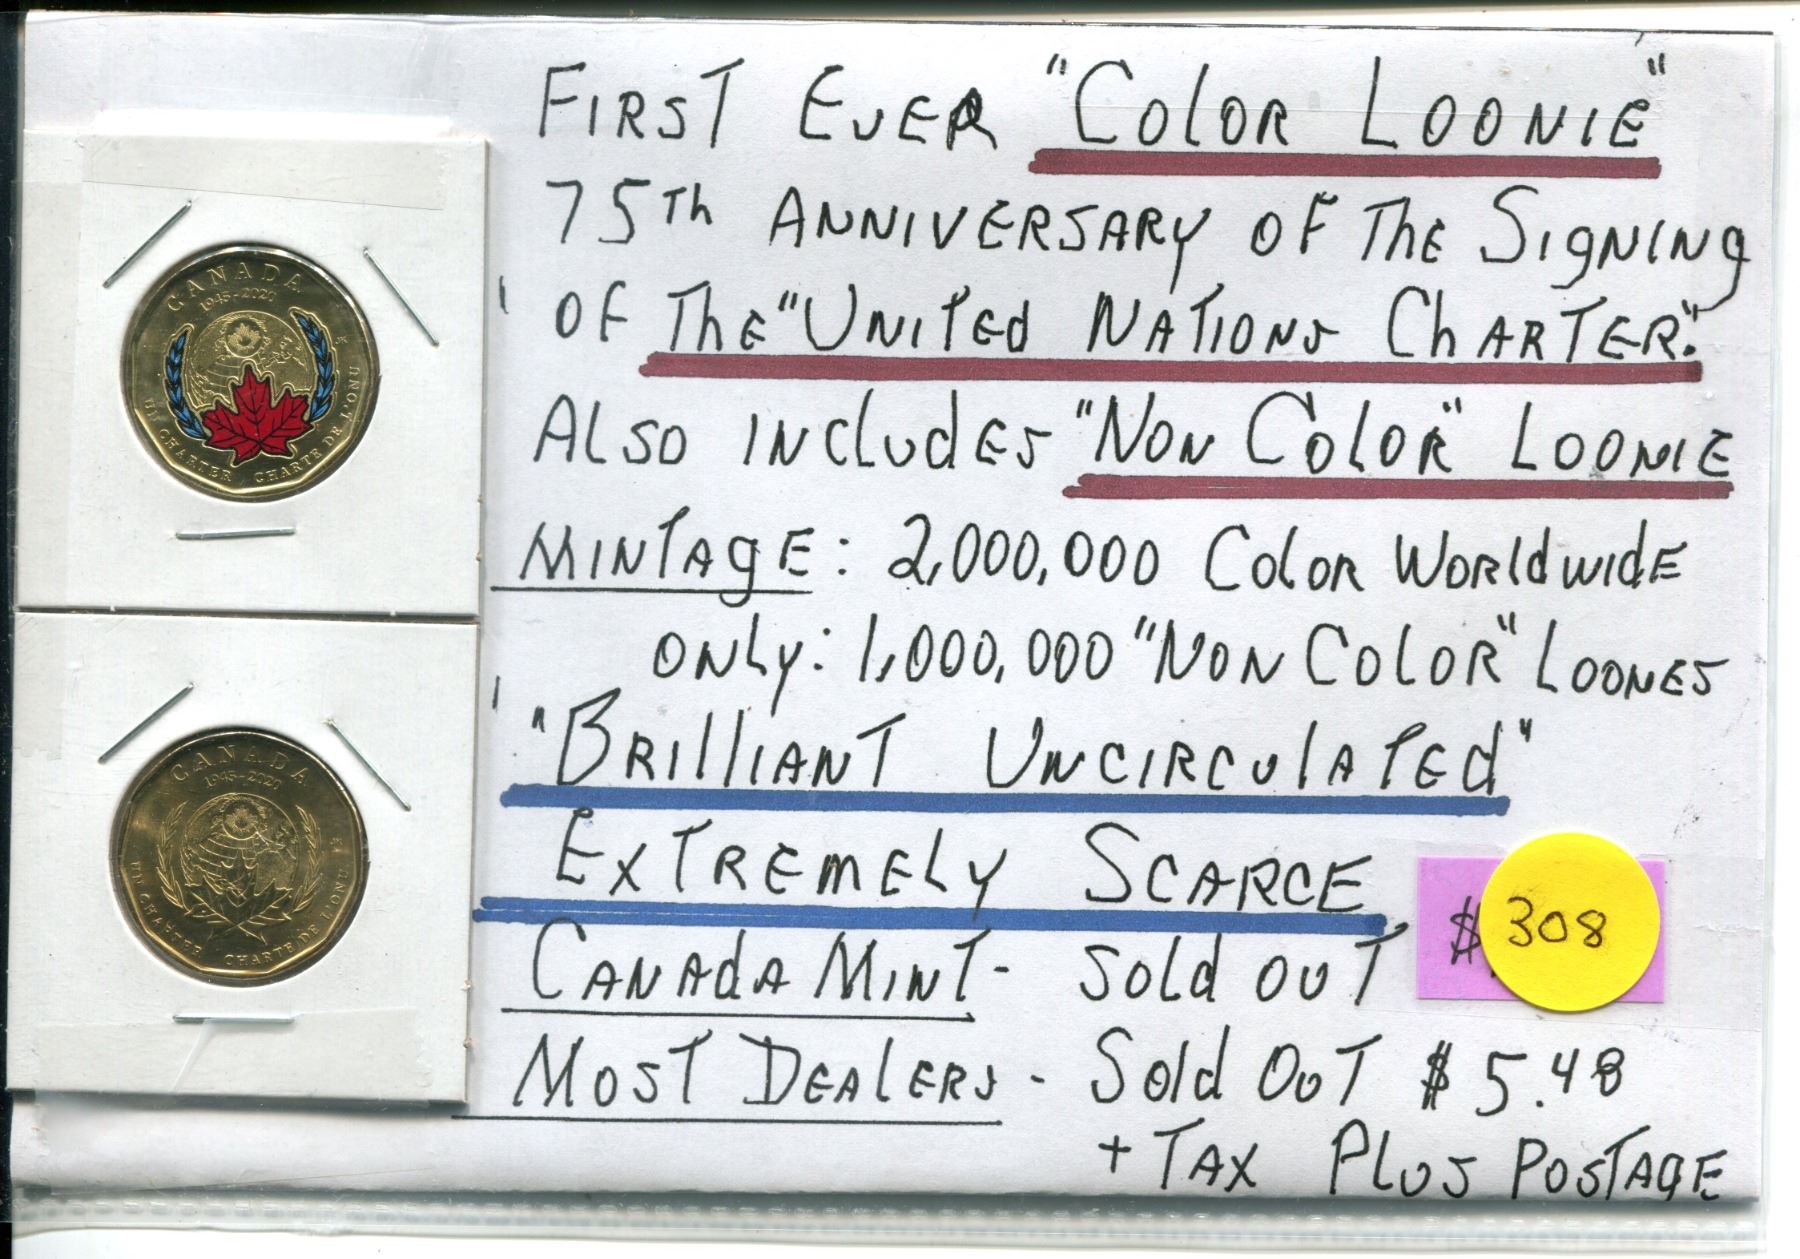 CANADA
1945-2020
JK
UN CHARTER CHARTE DE L'ONU
CANADA
1945-2020
UN CHARTER CHARTE DE L'ONU
FIRST EVER "COLOR LOONIE"
75TH ANNIVERSARY OF THE SIGNING
OF THE "UNITED NATIONS CHARTER".
ALSO INCLUDES "NON COLOR" LOONIE
MINTAGE: 2,000,000 COLOR WORLDWIDE
ONLY: 1,000,000 "NON COLOR" LOONES
"BRILLIANT UNCIRCULATED"
EXTREMELY SCARCE
CANADA MINT - SOLD OUT
$ 308
MOST DEALERS - SOLD OUT $5.48
+ TAX PLUS POSTAGE